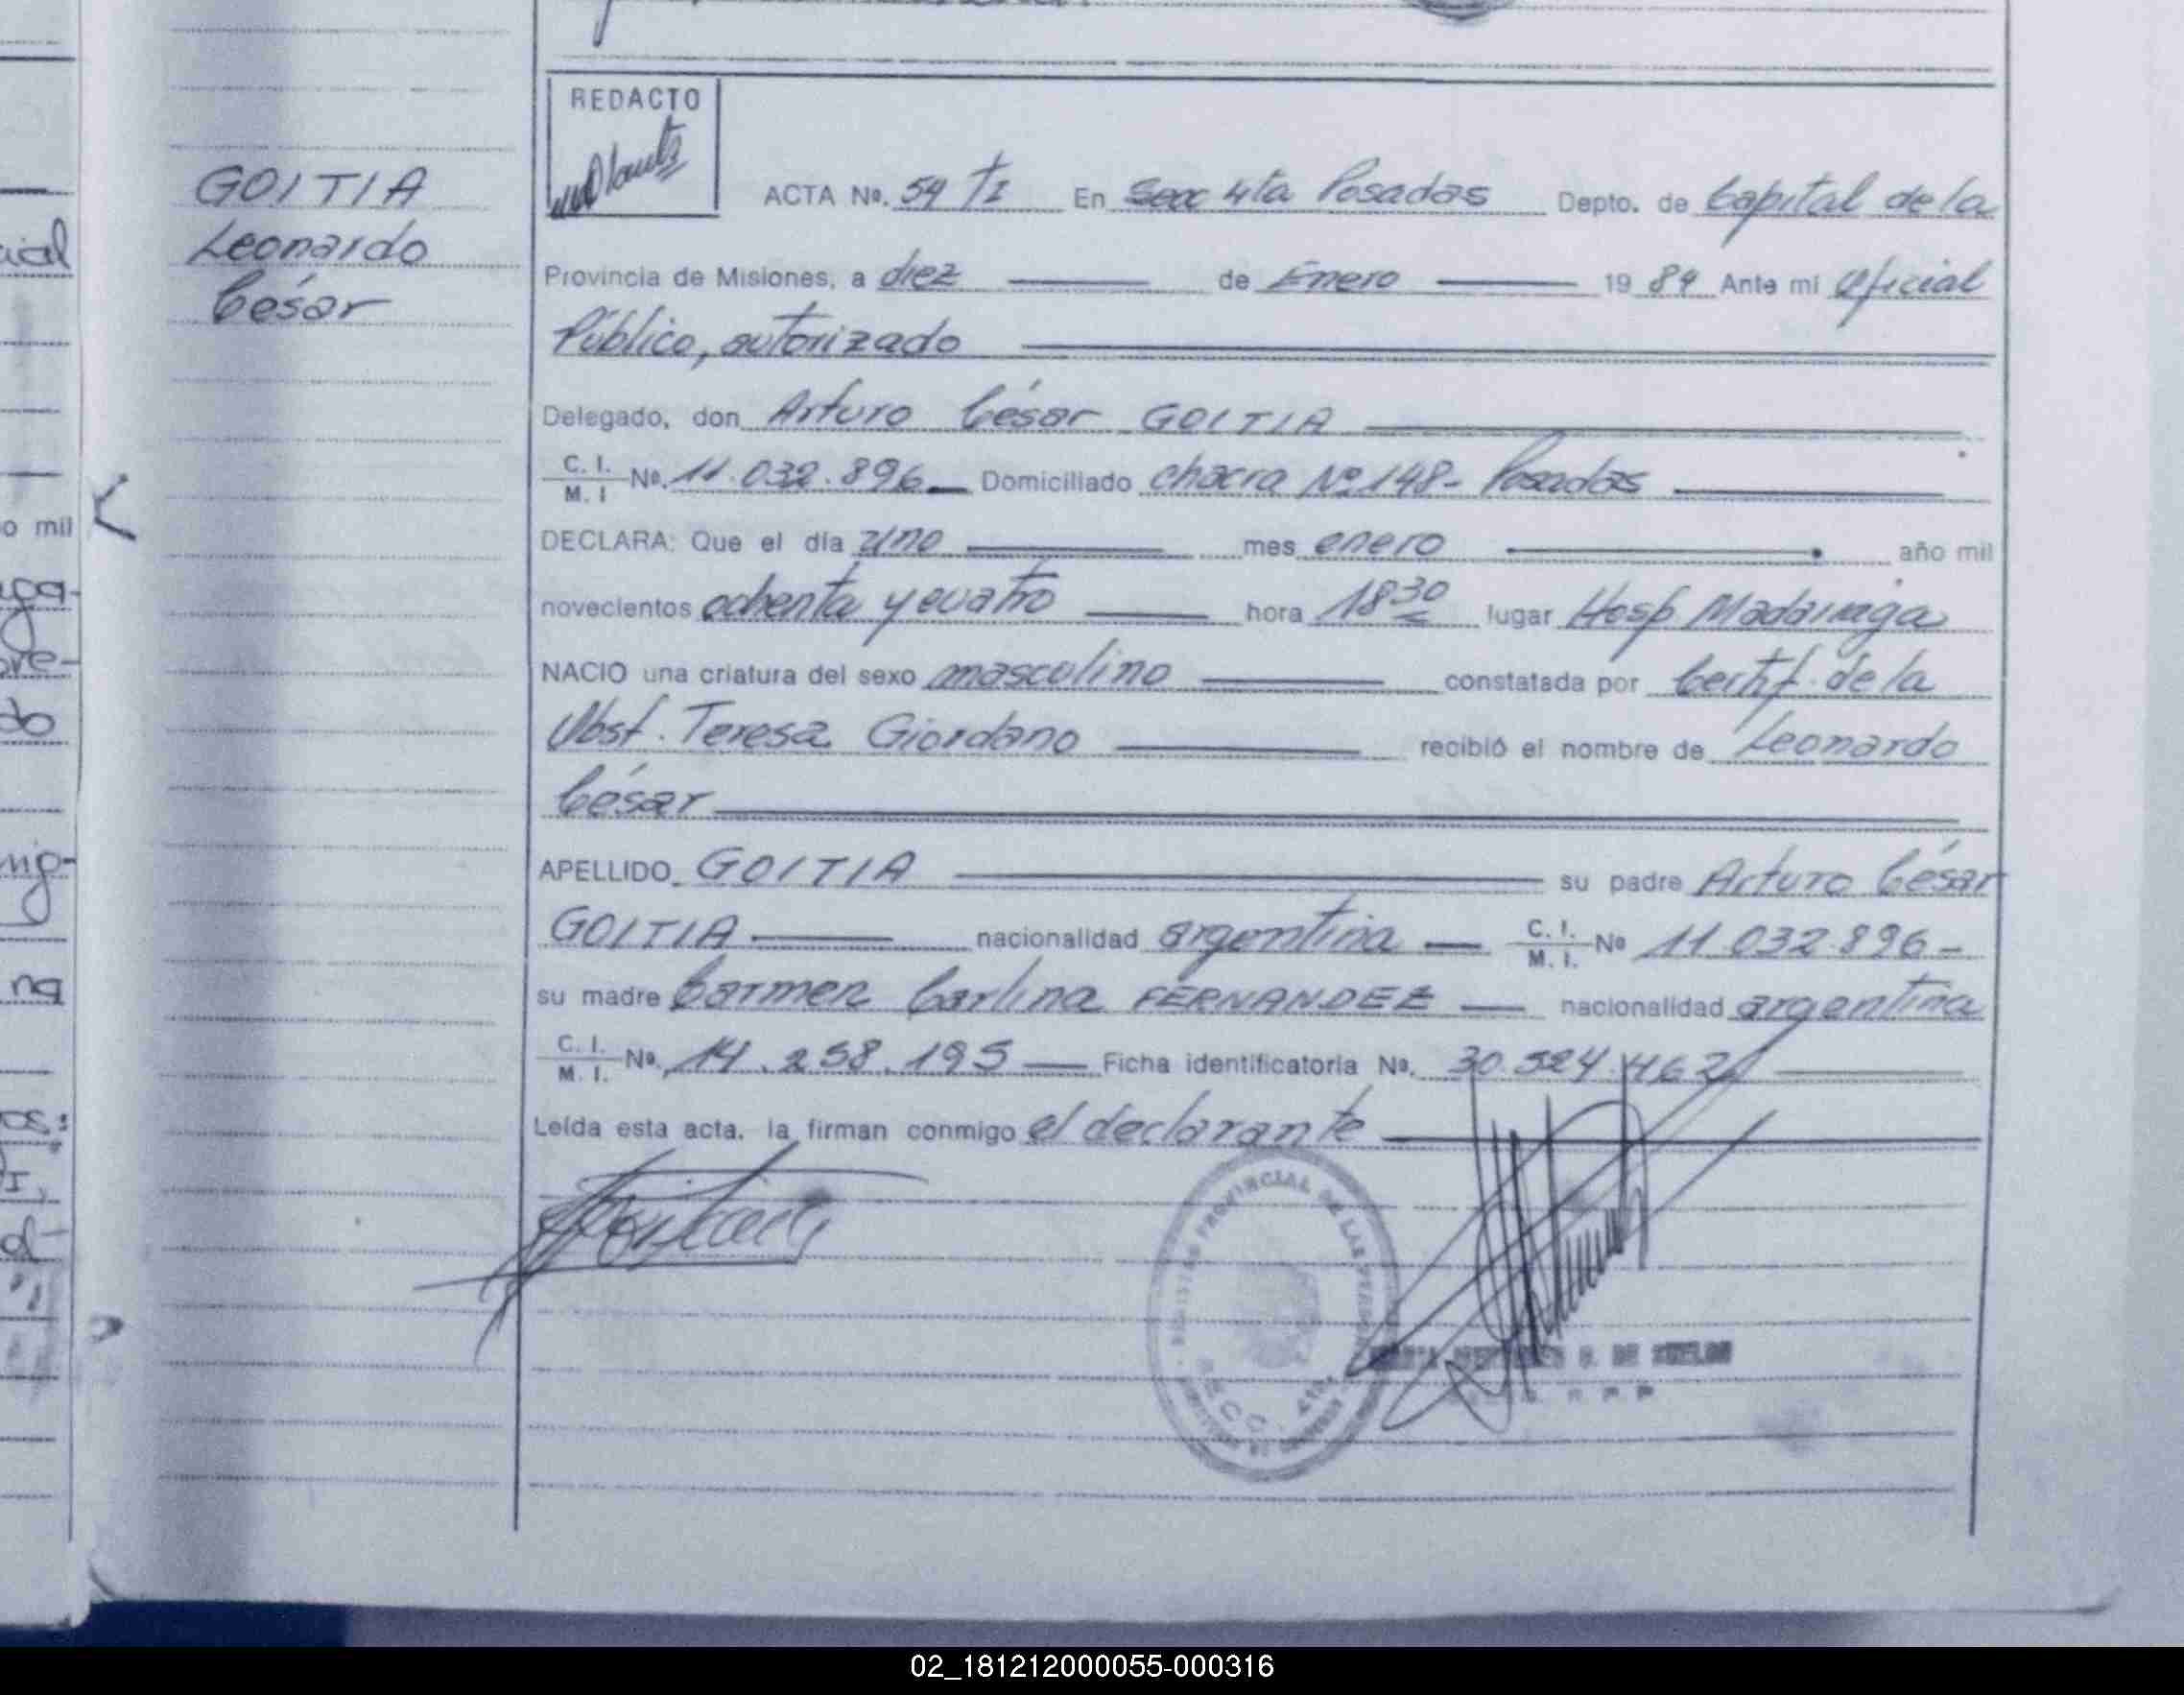 GOITIA
Leonardo
César
REDACTO
ACTA No. 54 TI En Secc 4ta Posadas Depto. de Capital de la
Provincia de Misiones, a diez de Enero 1984 Ante mi Oficial
Público, autorizado
Delegado, don Arturo César GOITIA
C. I. M. I No. 11.032.896 Domiciliado chacra Nº 148 - Posadas
DECLARA: Que el día uno mes enero año mil
novecientos ochenta y cuatro hora 18 30 lugar Hosp Madariaga
NACIO una criatura del sexo masculino constatada por Certif. de la
Obst. Teresa Giordano recibió el nombre de Leonardo
César
APELLIDO GOITIA su padre Arturo César
GOITIA nacionalidad argentina C. I. M. I. No 11.032.896-
su madre Carmen Carlina FERNANDEZ nacionalidad argentina
C. I. M. I. No. 14.258.195 Ficha identificatoria No. 30.524.462
Leída esta acta, la firman conmigo el declarante
REGISTRO PROVINCIAL DE LAS PERSONAS
SECC. 4ta.
DE SUELDO
cial
o mil
aga-
pre-
do
ng
os:
I,
d
02_181212000055-000316